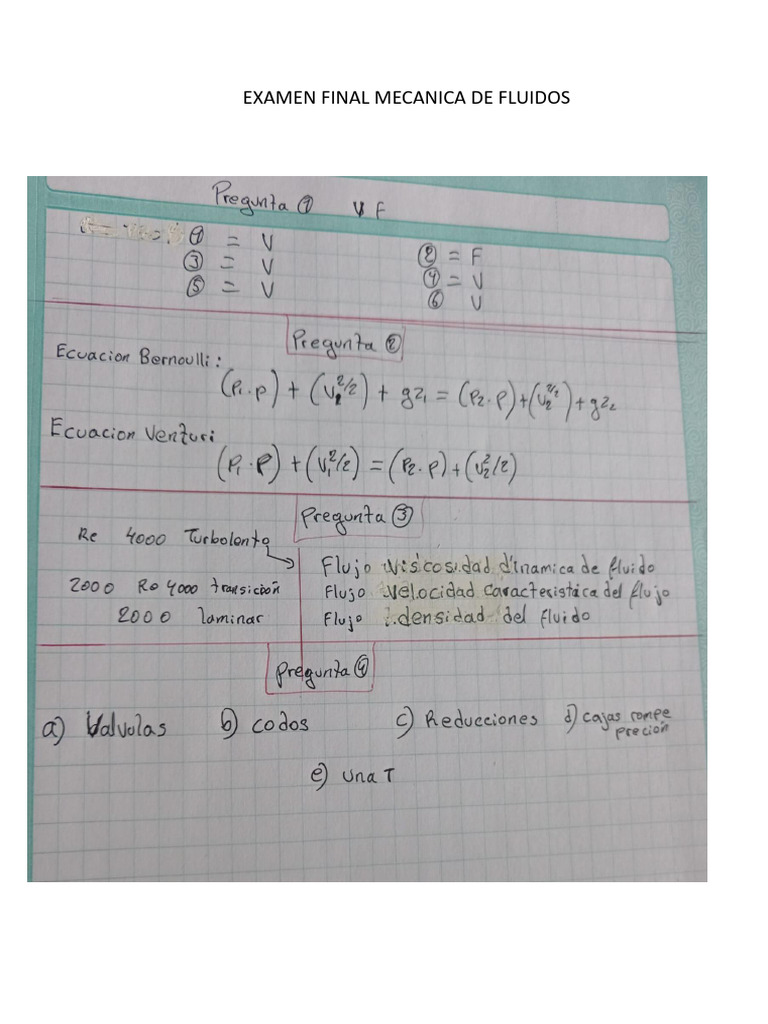 EXAMEN FINAL MECANICA DE FLUIDOS
Pregunta ① V F
① = V ② = F
③ = V ④ = V
⑤ = V ⑥ V
Pregunta ②
Ecuacion Bernoulli:
(P₁·p) + (V₁²/2) + gz₁ = (P₂·p) + (V₂²/2) + gz₂
Ecuacion Venturi
(P₁·P) + (V₁²/2) = (P₂·p) + (V₂²/2)
Pregunta ③
Re 4000 Turbolento
2000 Re 4000 transicion
2000 laminar
Flujo Viscosidad dinamica de fluido
Flujo velocidad caracteristica del flujo
Flujo densidad del fluido
Pregunta ④
a) Valvulas b) codos c) Reducciones d) cajas rompe precion
e) una T